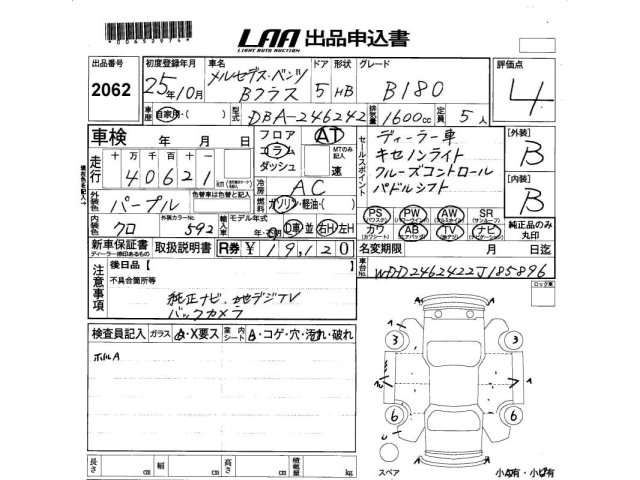 00652974
LAA 出品申込書
LIGHT AUTO AUCTION
出品番号 2062
初度登録年月 25年10月
車名 メルセデス・ベンツ Bクラス
ドア 5
形状 HB
グレード B180
評価点 4
車歴 自家用・( )
型式 DBA-246242
排気量 1600cc
定員 5人
車検 年 月 日
フロア コラム ダッシュ
AT
MTのみ記入 速
セールスポイント
ディーラー車
キセノンライト
クルーズコントロール
パドルシフト
【外装】 B
【内装】 B
走行 十万千百十一
40621 km
冷房 AC
燃料 ガソリン・軽油・( )
外装色 パープル
色替車は色替と記入
内装色 クロ
外装カラーNo. 592
輸入車 モデル年式 年・
D車 並 右H 左H
PS (パワステ) PW (パワーウインド) AW (アルミホイル) SR (サンルーフ)
カワ (カワシート) AB (エアバッグ) TV ナビ (ナビゲーション)
純正品のみ丸印
新車保証書 取扱説明書 R券 ¥19,120
ディーラー捺印あるもの
名変期限 月 日迄
車台No. WDD2462422J185896
ロック車
注意事項
後日品【
不具合箇所等
純正ナビ、地デジTV
バックカメラ
検査員記入 ガラス A・X要ス 室内シート A・コゲ・穴・汚れ・破れ
ホイルA
3 3
6 6
スペア
小A有・小U有
長さ cm 幅 cm 高さ cm 積載量 kg